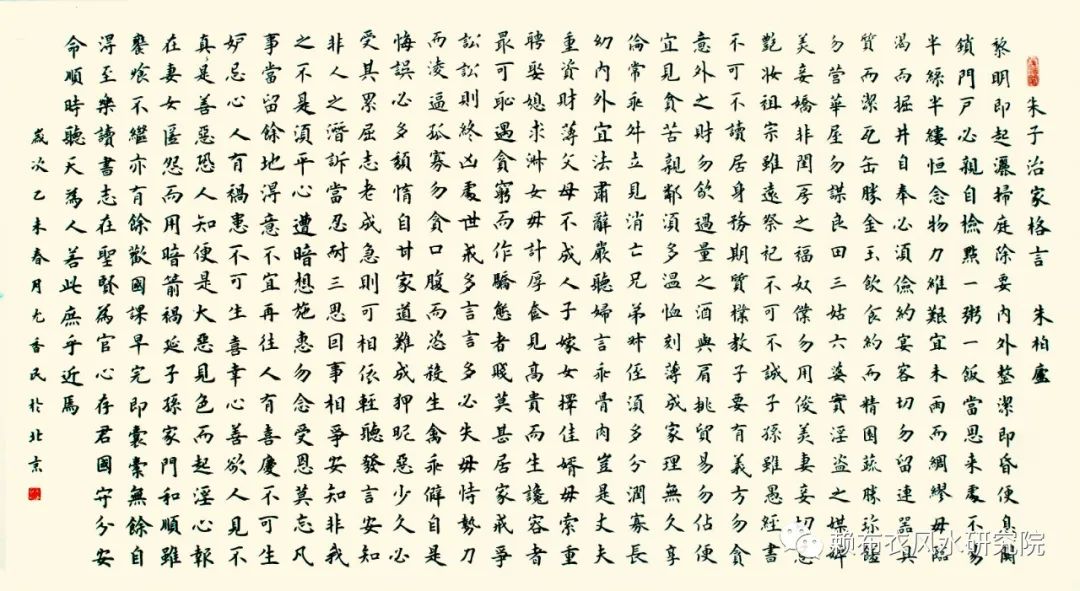 朱子治家格言 朱柏廬
黎明即起灑掃庭除要內外整潔即昏便息關
鎖門戶必親自檢點一粥一飯當思來處不易
半絲半縷恒念物力維艱宜未雨而綢繆毋臨
渴而掘井自奉必須儉約宴客切勿留連器具
質而潔瓦缶勝金玉飲食約而精園蔬勝珍饈
勿營華屋勿謀良田三姑六婆實淫盜之媒婢
美妾嬌非閨房之福奴僕勿用俊美妻妾切忌
艷妝祖宗雖遠祭祀不可不誠子孫雖愚經書
不可不讀居身務期質樸教子要有義方勿貪
意外之財勿飲過量之酒與肩挑貿易勿佔便
宜見貧苦親鄰須多溫恤刻薄成家理無久享
倫常乖舛立見消亡兄弟叔侄須多分潤寡長
幼內外宜法肅辭嚴聽婦言乖骨肉豈是丈夫
重資財薄父母不成人子嫁女擇佳婿毋索重
聘娶媳求淑女毋計厚奩見高貴而生讒容者
最可恥遇貧窮而作驕態者賤莫甚居家戒爭
訟訟則終凶處世戒多言言多必失毋恃勢力
而凌逼孤寡勿貪口腹而恣殺生禽乖僻自是
悔誤必多頹惰自甘家道難成狎昵惡少久必
受其累屈志老成急則可相依輕聽發言安知
非人之譖訴當忍耐三思因事相爭安知非我
之不是須平心遭暗想施惠勿念受恩莫忘凡
事當留餘地得意不宜再往人有喜慶不可生
妒忌心人有禍患不可生喜幸心善欲人見不
真是善惡恐人知便是大惡見色而起淫心報
在妻女匿怨而用暗箭禍延子孫家門和順雖
饔飧不繼亦有餘歡國課早完即囊橐無餘自
得至樂讀書志在聖賢為官心存君國守分安
命順時聽天為人若此庶乎近焉
歲次乙未春月尤香民於北京
赖布衣风水研究院